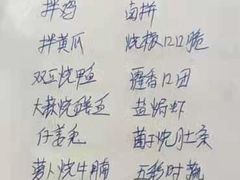 拌鸡 卤拼
拌黄瓜 烧椒口口脆
双豆烧甲鱼
大蒜烧 酒香口团
仔姜兔 盐焗虾
萝卜烧牛腩 菌子烧肚条
五彩时蔬